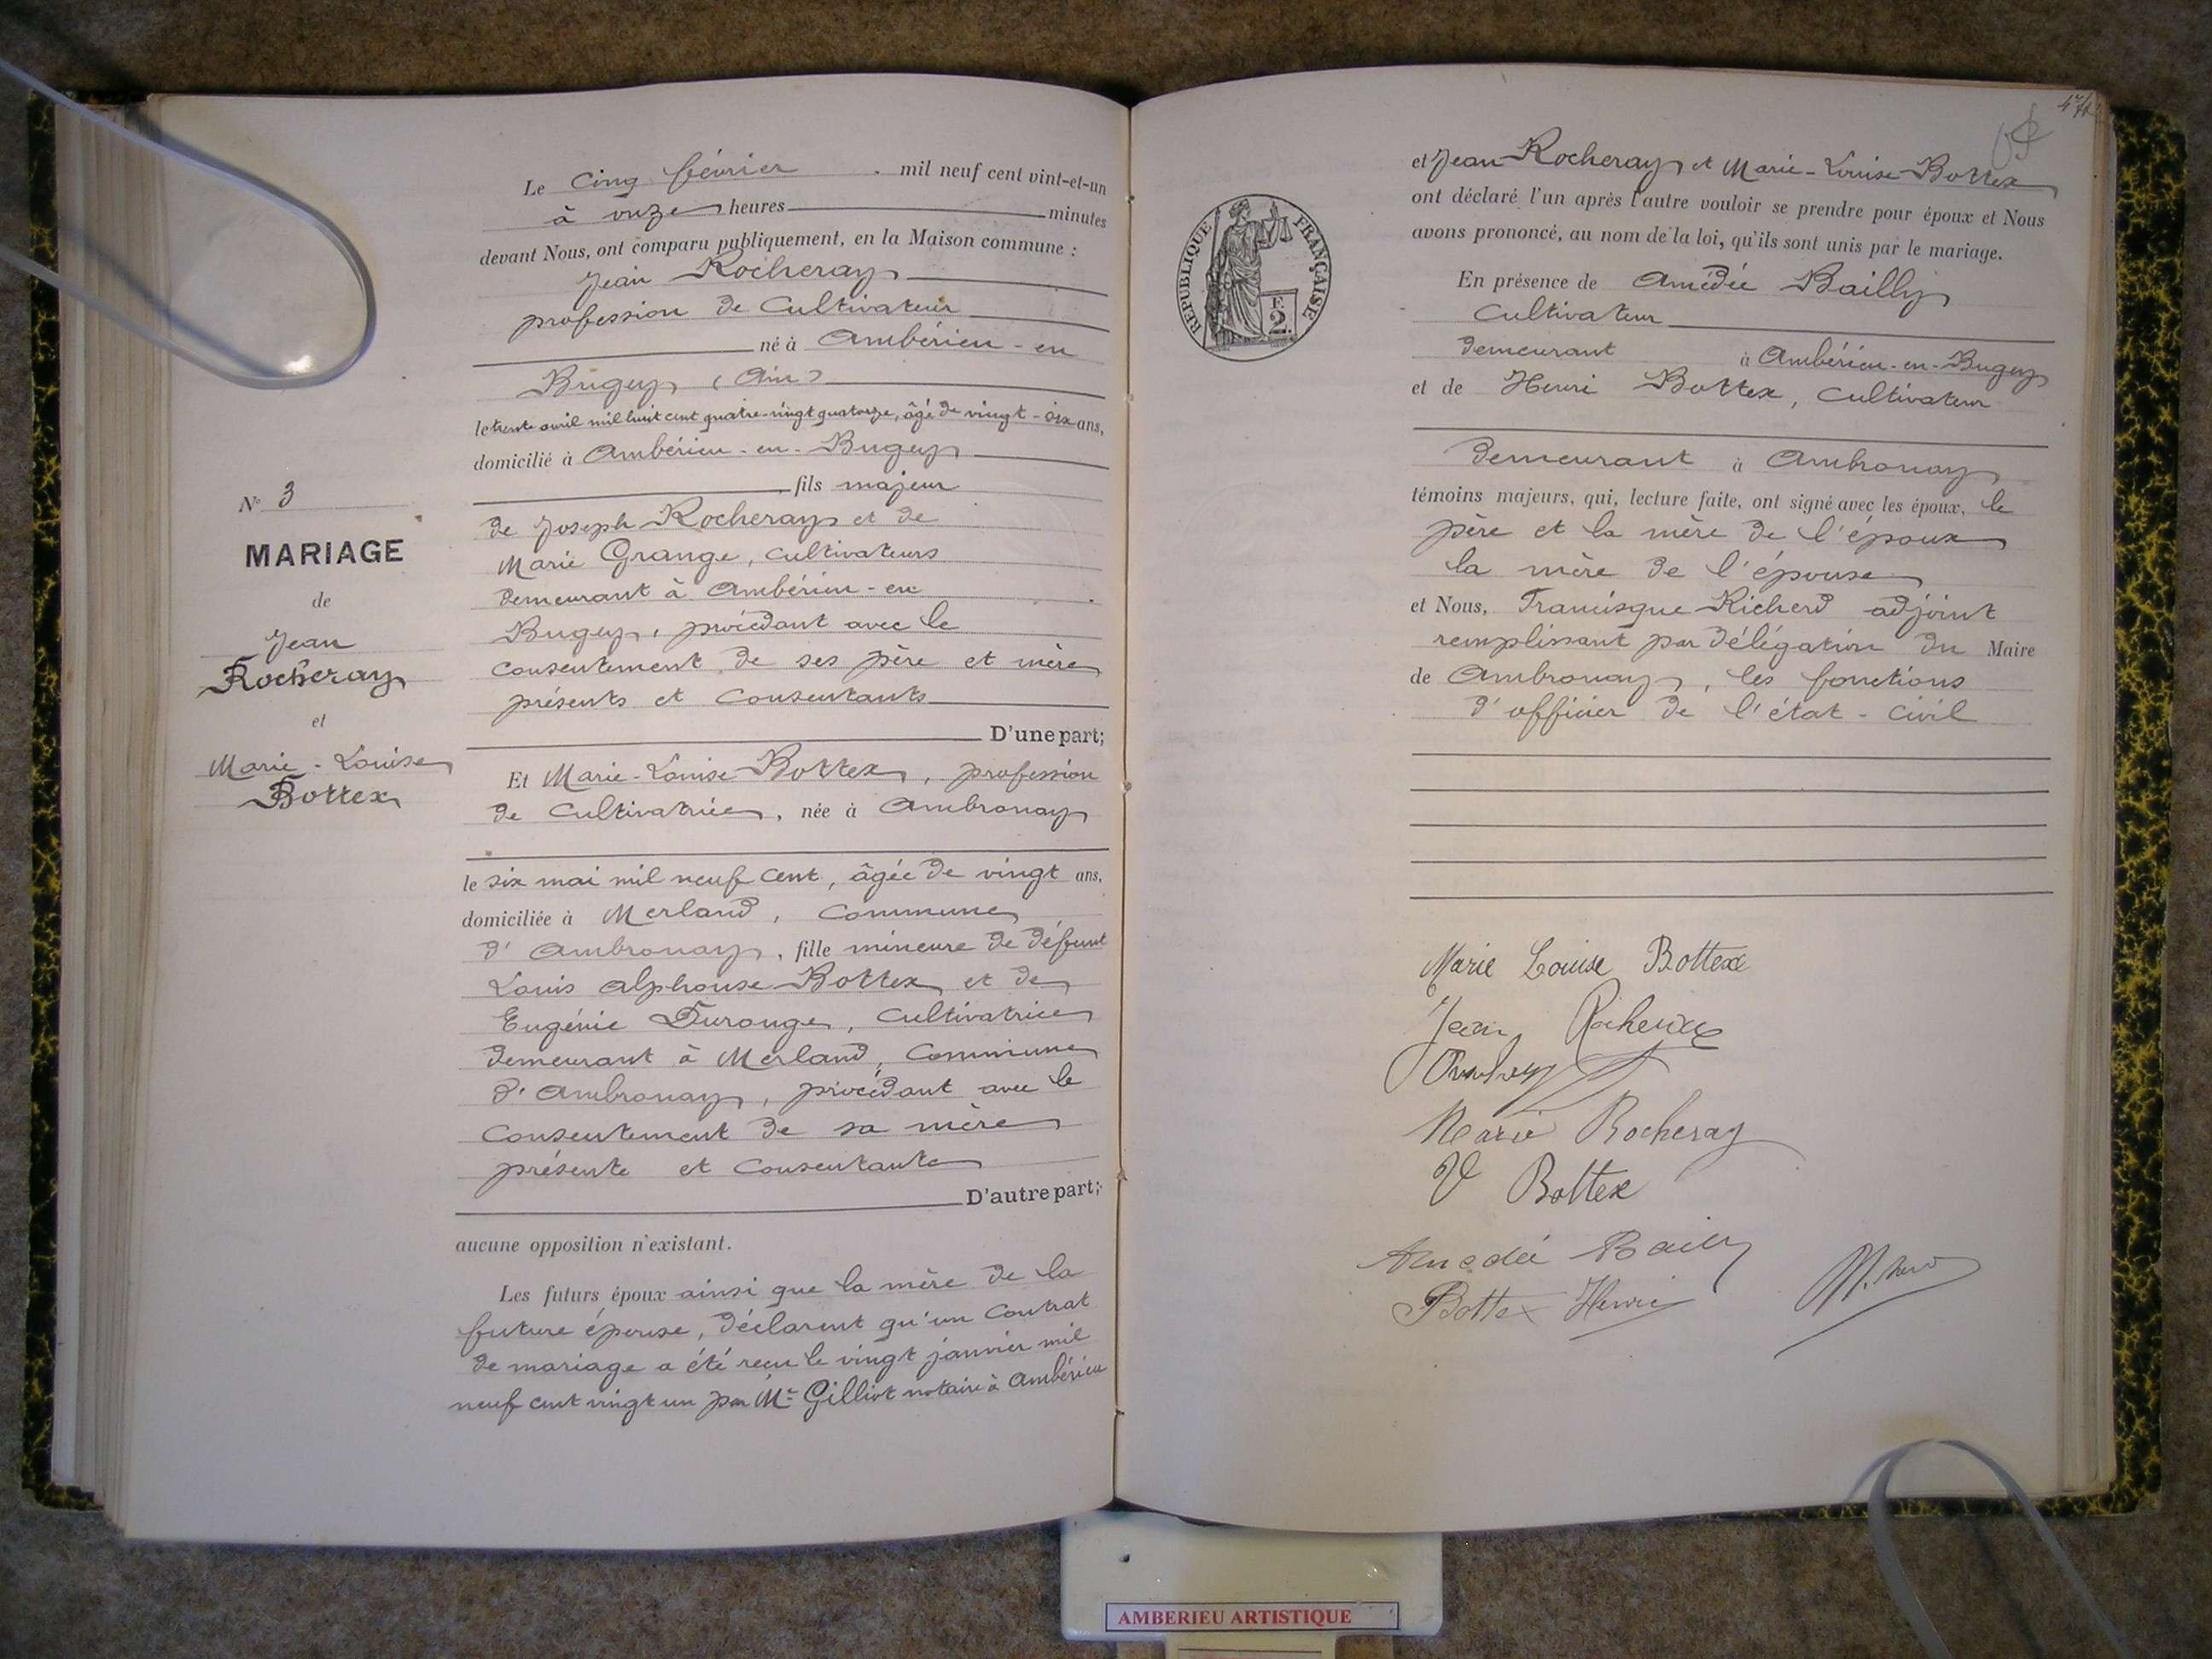 Le cinq février mil neuf cent vint-et-un
à onze heures minutes
devant Nous, ont comparu publiquement, en la Maison commune :
Jean Rocheray
profession de Cultivateur
né à Ambérieu-en
Bugey (Ain)
le trente avril mil huit cent quatre-vingt quatorze, âgé de vingt-six ans,
domicilié à Ambérieu-en-Bugey
fils majeur
de Joseph Rocheray et de
Marie Grange, cultivateurs
demeurant à Ambérieu-en
Bugey, procédant avec le
consentement de ses père et mère
présents et consentants
D'une part;
Et Marie-Louise Bottex, profession
de Cultivatrice, née à Ambronay
le six mai mil neuf cent, âgée de vingt ans,
domiciliée à Merland, Commune
d'Ambronay, fille mineure de défunt
Louis Alphonse Bottex et de
Eugénie Durouge, Cultivatrice
demeurant à Merland, Commune
d'Ambronay, procédant avec le
consentement de sa mère
présente et consentante
D'autre part;
aucune opposition n'existant.
Les futurs époux ainsi que la mère de la
future épouse, déclarent qu'un contrat
de mariage a été reçu le vingt janvier mil
neuf cent vingt un par Me Gilliot notaire à Ambérieu
N° 3
MARIAGE
de
Jean
Rocheray
et
Marie-Louise
Bottex
et Jean Rocheray et Marie-Louise Bottex
ont déclaré l'un après l'autre vouloir se prendre pour époux et Nous
avons prononcé, au nom de la loi, qu'ils sont unis par le mariage.
En présence de Amédée Bailly
Cultivateur
demeurant à Ambérieu-en-Bugey
et de Henri Bottex, Cultivateur
demeurant à Ambronay
témoins majeurs, qui, lecture faite, ont signé avec les époux, le
père et la mère de l'époux
la mère de l'épouse
et Nous, Francisque Richerd adjoint
remplissant par délégation du Maire
de Ambronay, les fonctions
d'officier de l'état-civil
REPUBLIQUE FRANÇAISE
F.
2.
Marie Louise Bottex
Jean Rocheray
Marie Rocheray
V Bottex
Amédée Bailly
Bottex Henri
AMBERIEU ARTISTIQUE